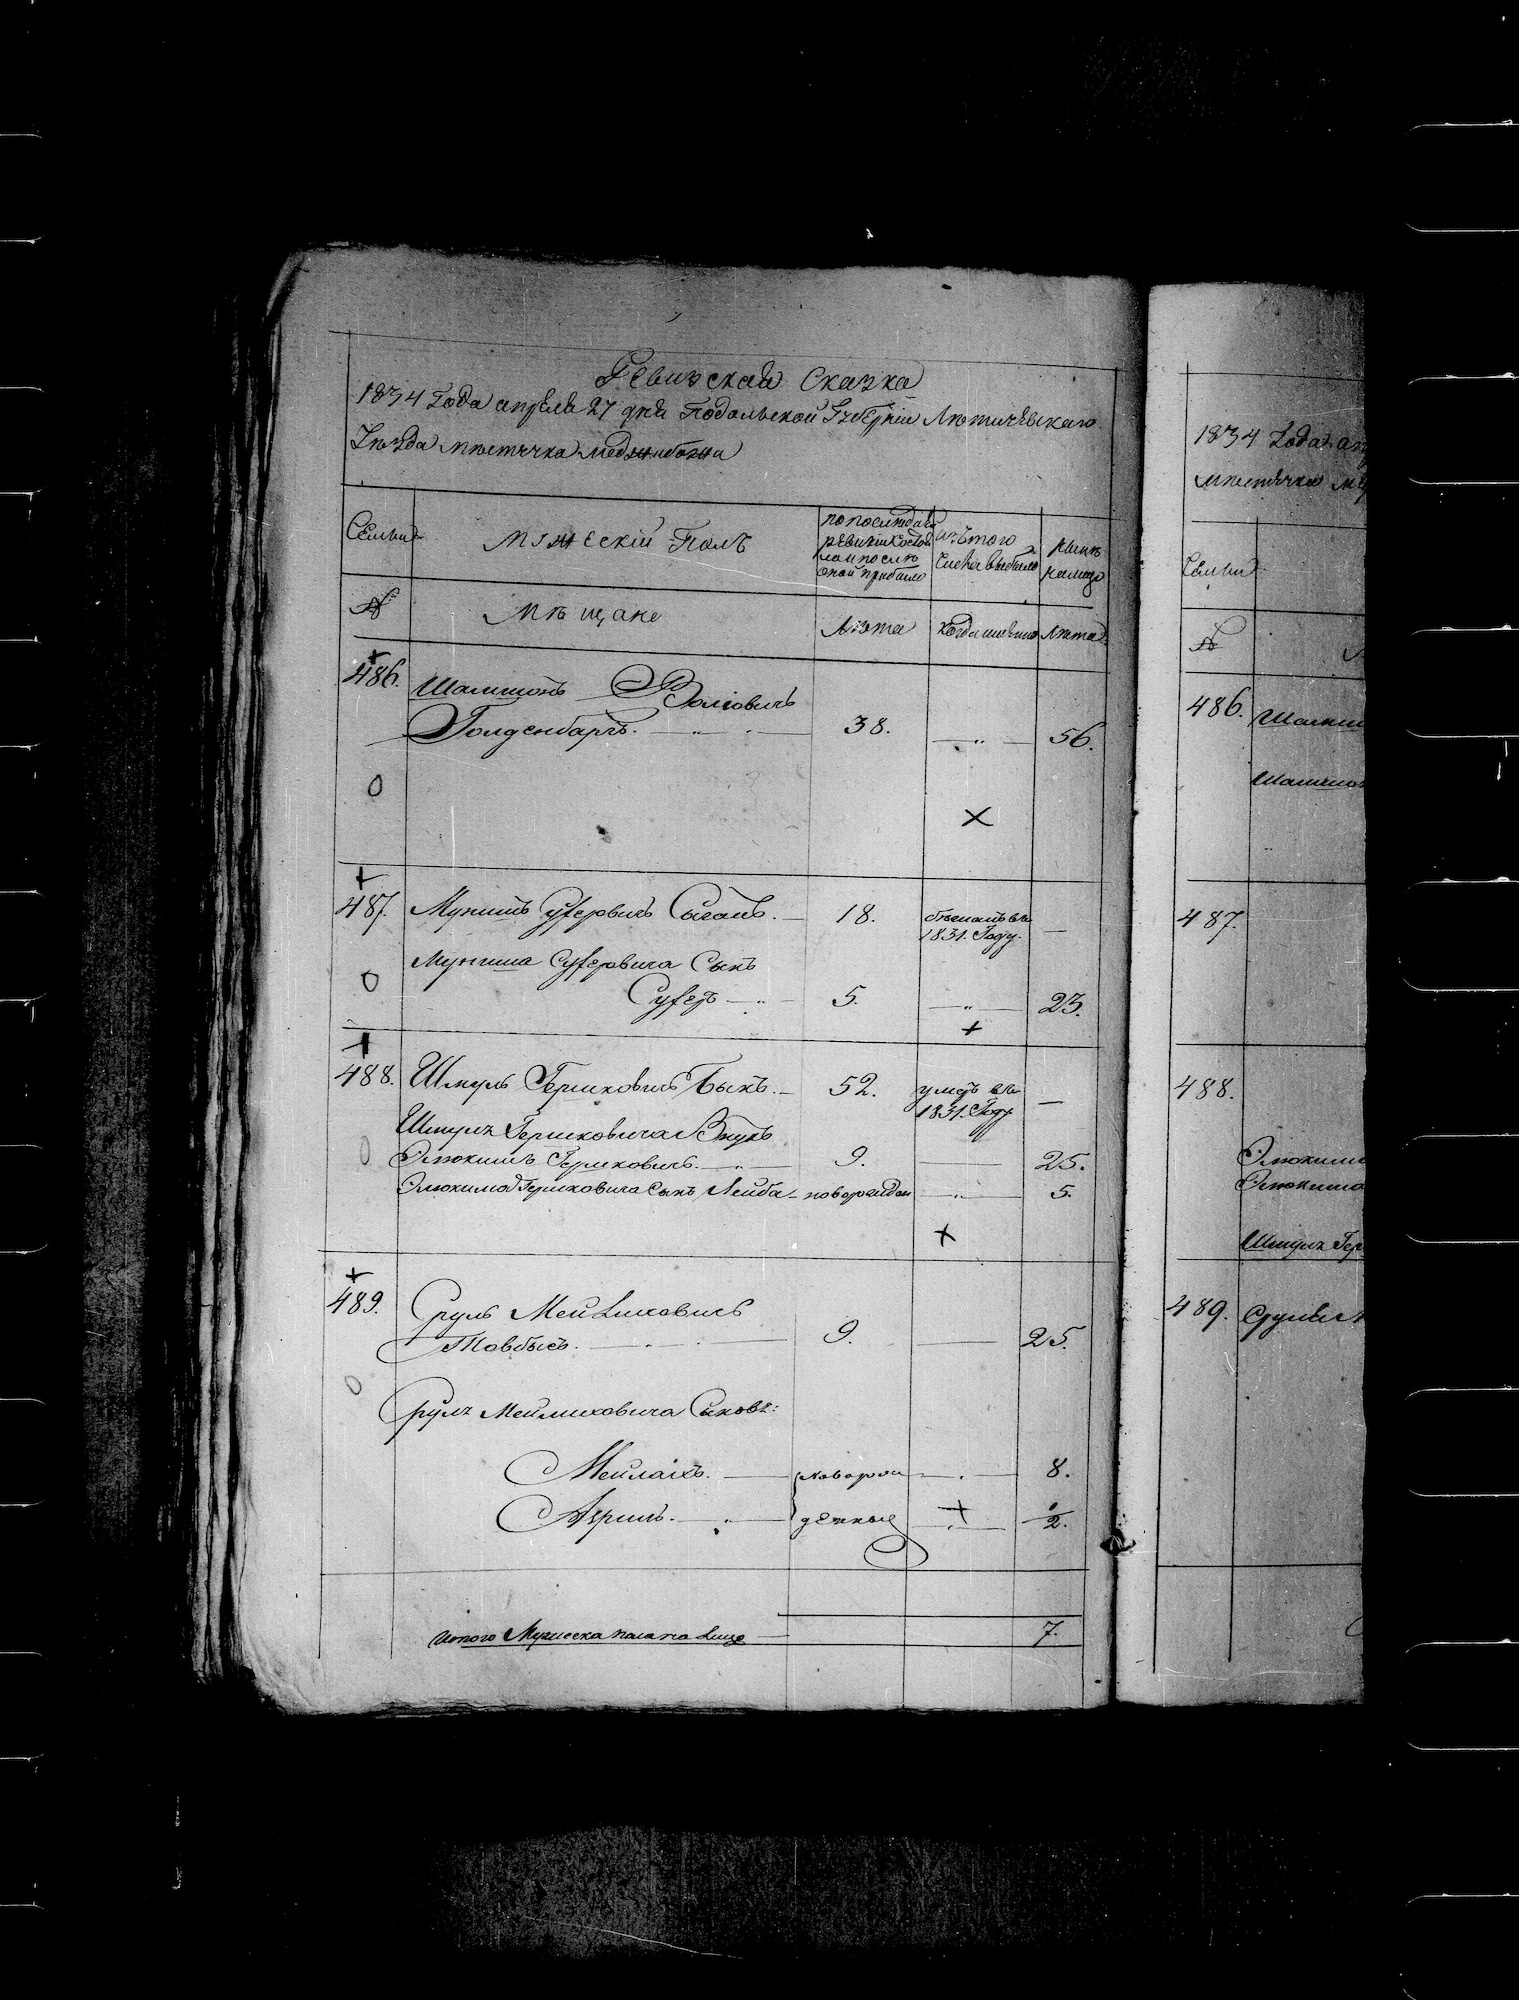 Ревизская Сказка
1834 Года апреля 27 дня Подольской Губернии Летичевскаго
Уезда местечка Меджибожа
Семьи
Мужескій Полъ
по последней
ревизіи состоя
ло и после
оной прибыло
Изъ того
числа выбыло
Ныне
налицо
№
Мещане
Лета
Когда именно
Лета
486.
Шамшонъ Волковичъ
Голденбаргъ.
38.
56.
487.
Мунишъ Суферовичъ
18.
бежалъ въ
1831. Году.
Муниша Суферовича Сынъ
Суферъ
5.
23.
488.
Шмуль Гершковичъ Быкъ.
52.
умеръ въ
1831. Году
Шмуля Гершковича Внукъ
Элюкимъ Гершковичъ.
9.
25.
Элюкима Гершковича Сынъ Лейба
новорожден
5.
489.
Сруль Мейлиховичъ
Товбысъ.
9.
25.
Сруля Мейлиховича Сыновя:
Мейлахъ.
новорож
8.
Аврумъ.
денные
1/2.
Итого Мужеска пола на лицо
7.
1834 Года
местечка
Семьи
№
486.
487.
488.
Шмуля Гер
489.